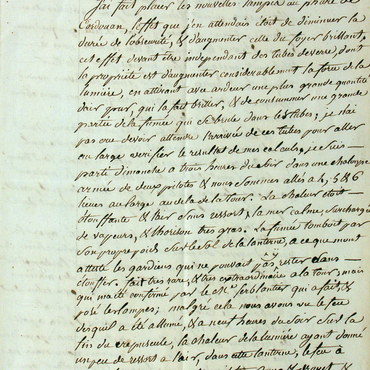 J'ai fait placer les nouvelles lampes au phare de
Cordouan, l'effet que j'en attendais était de diminuer la
durée de l'obscurité, & d'augmenter celle du foyer brillant,
cet effet devant être indépendant des tubes de verre, dont
la propriété est d'augmenter considérablement la force de la
lumière, en attirant avec ardeur une plus grande quantité
d'air pour, qui la fait briller, & de consummer une grande
partie de la fumée qui se brule dans les tubes; je n'ai
pas cru devoir attendre l'arrivée de ces tubes pour aller
au large verifier le resultat de mes calculs, je suis
parti dimanche a trois heures du soir dans une chaloupe
armée de deux pilotes & nous sommes allés a 4, 5 & 6
lieues au large au dela de la tour. La chaleur était
étouffante & l'air sans ressort, la mer calme surchargée
de vapeurs, & l'horison tres gras. La fumée tombait par
son propre poids sur le sol de la lanterne, a ce que m'ont
attesté les gardiens qui ne pouvait pas y rester sans
étouffer. fait très rare, & très extraordinaire a la tour, mais
qui m'a été confirmé par le ferblantier qui a fait, &
posé les lampes; malgré cela nous avons vu le feu
des qu'il a été allumé, & a neuf heures du soir sur la
fin du crepuscule, la chaleur de la lumière ayant donné
un peu de ressort a l'air, dans cette lanterne, le feu a